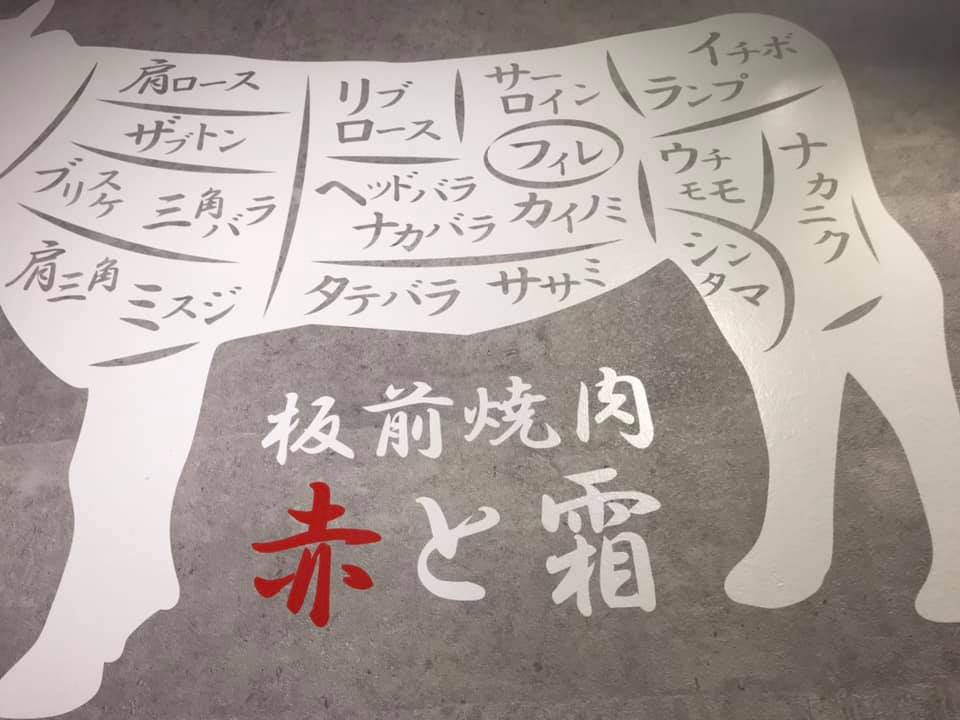 肩ロース
ザブトン
ブリスケ
三角バラ
肩三角
ミスジ
リブ
ロース
ヘッドバラ
ナカバラ
タテバラ
サー
ロイン
フィレ
カイノミ
ササミ
イチボ
ランプ
ウチ
モモ
シン
タマ
ナカニク
板前焼肉
赤と霜